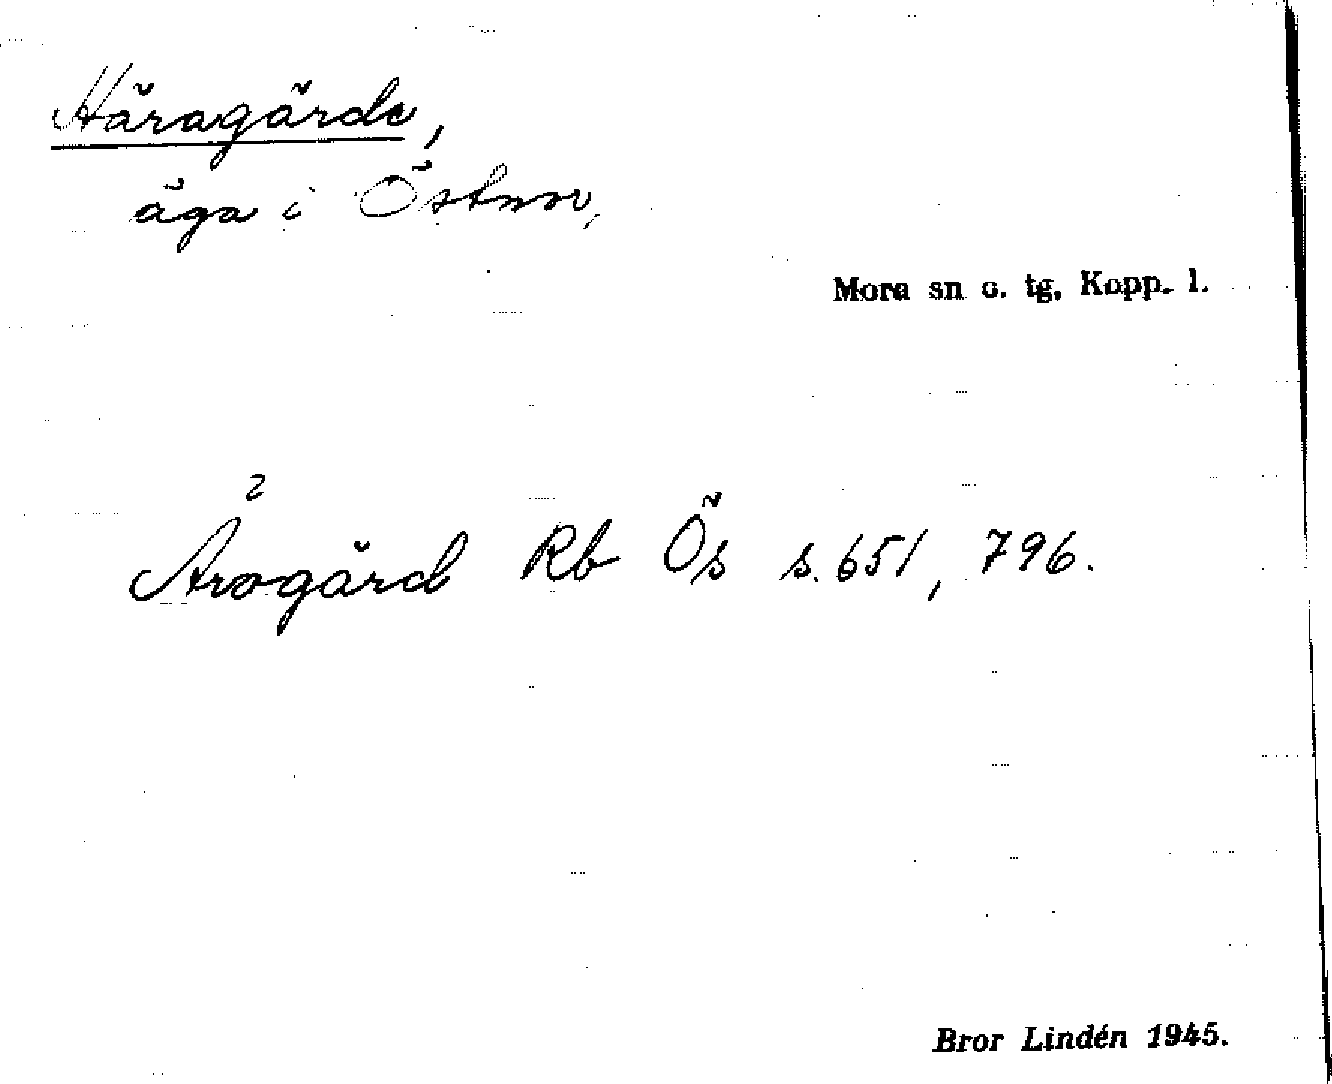 Häragärde,
äga i Östnor,
Mora sn o. tg, Kopp. l.
Ärogärd Rb Ös s. 651, 796.
Bror Lindén 1945.